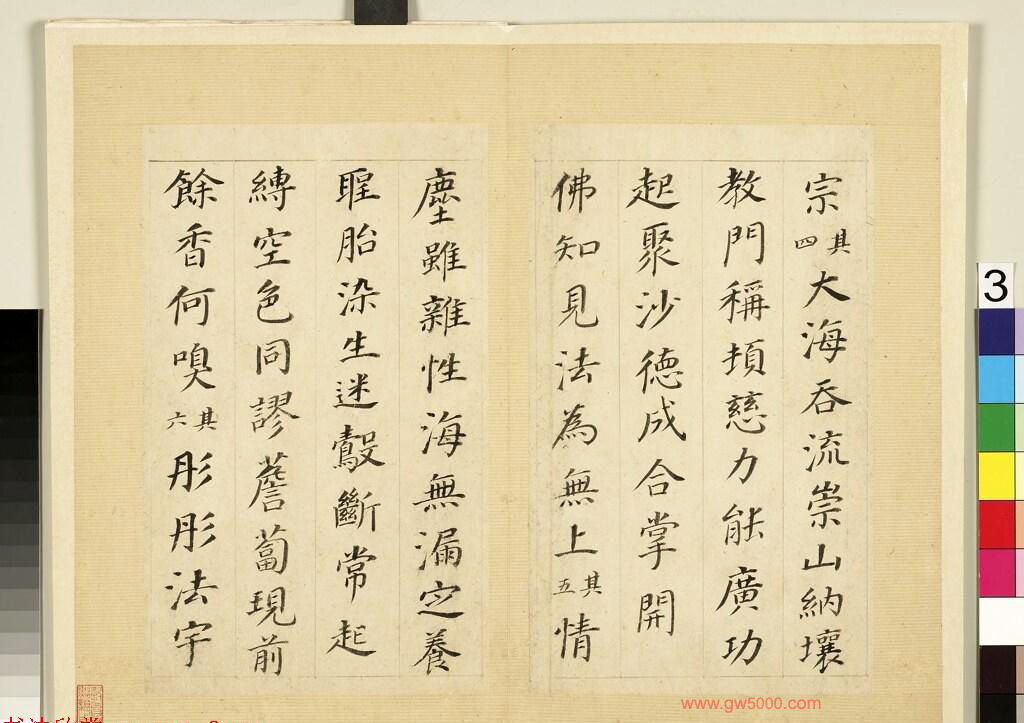 宗其四大海吞流崇山納壤
教門稱頓慈力能廣功
起聚沙德成合掌開
佛知見法為無上其五情
塵雖雜性海無漏㝎養
聖胎染生迷鷇斷常起
縛空色同謬薝蔔現前
餘香何嗅其六彤彤法宇
3
www.gw5000.com